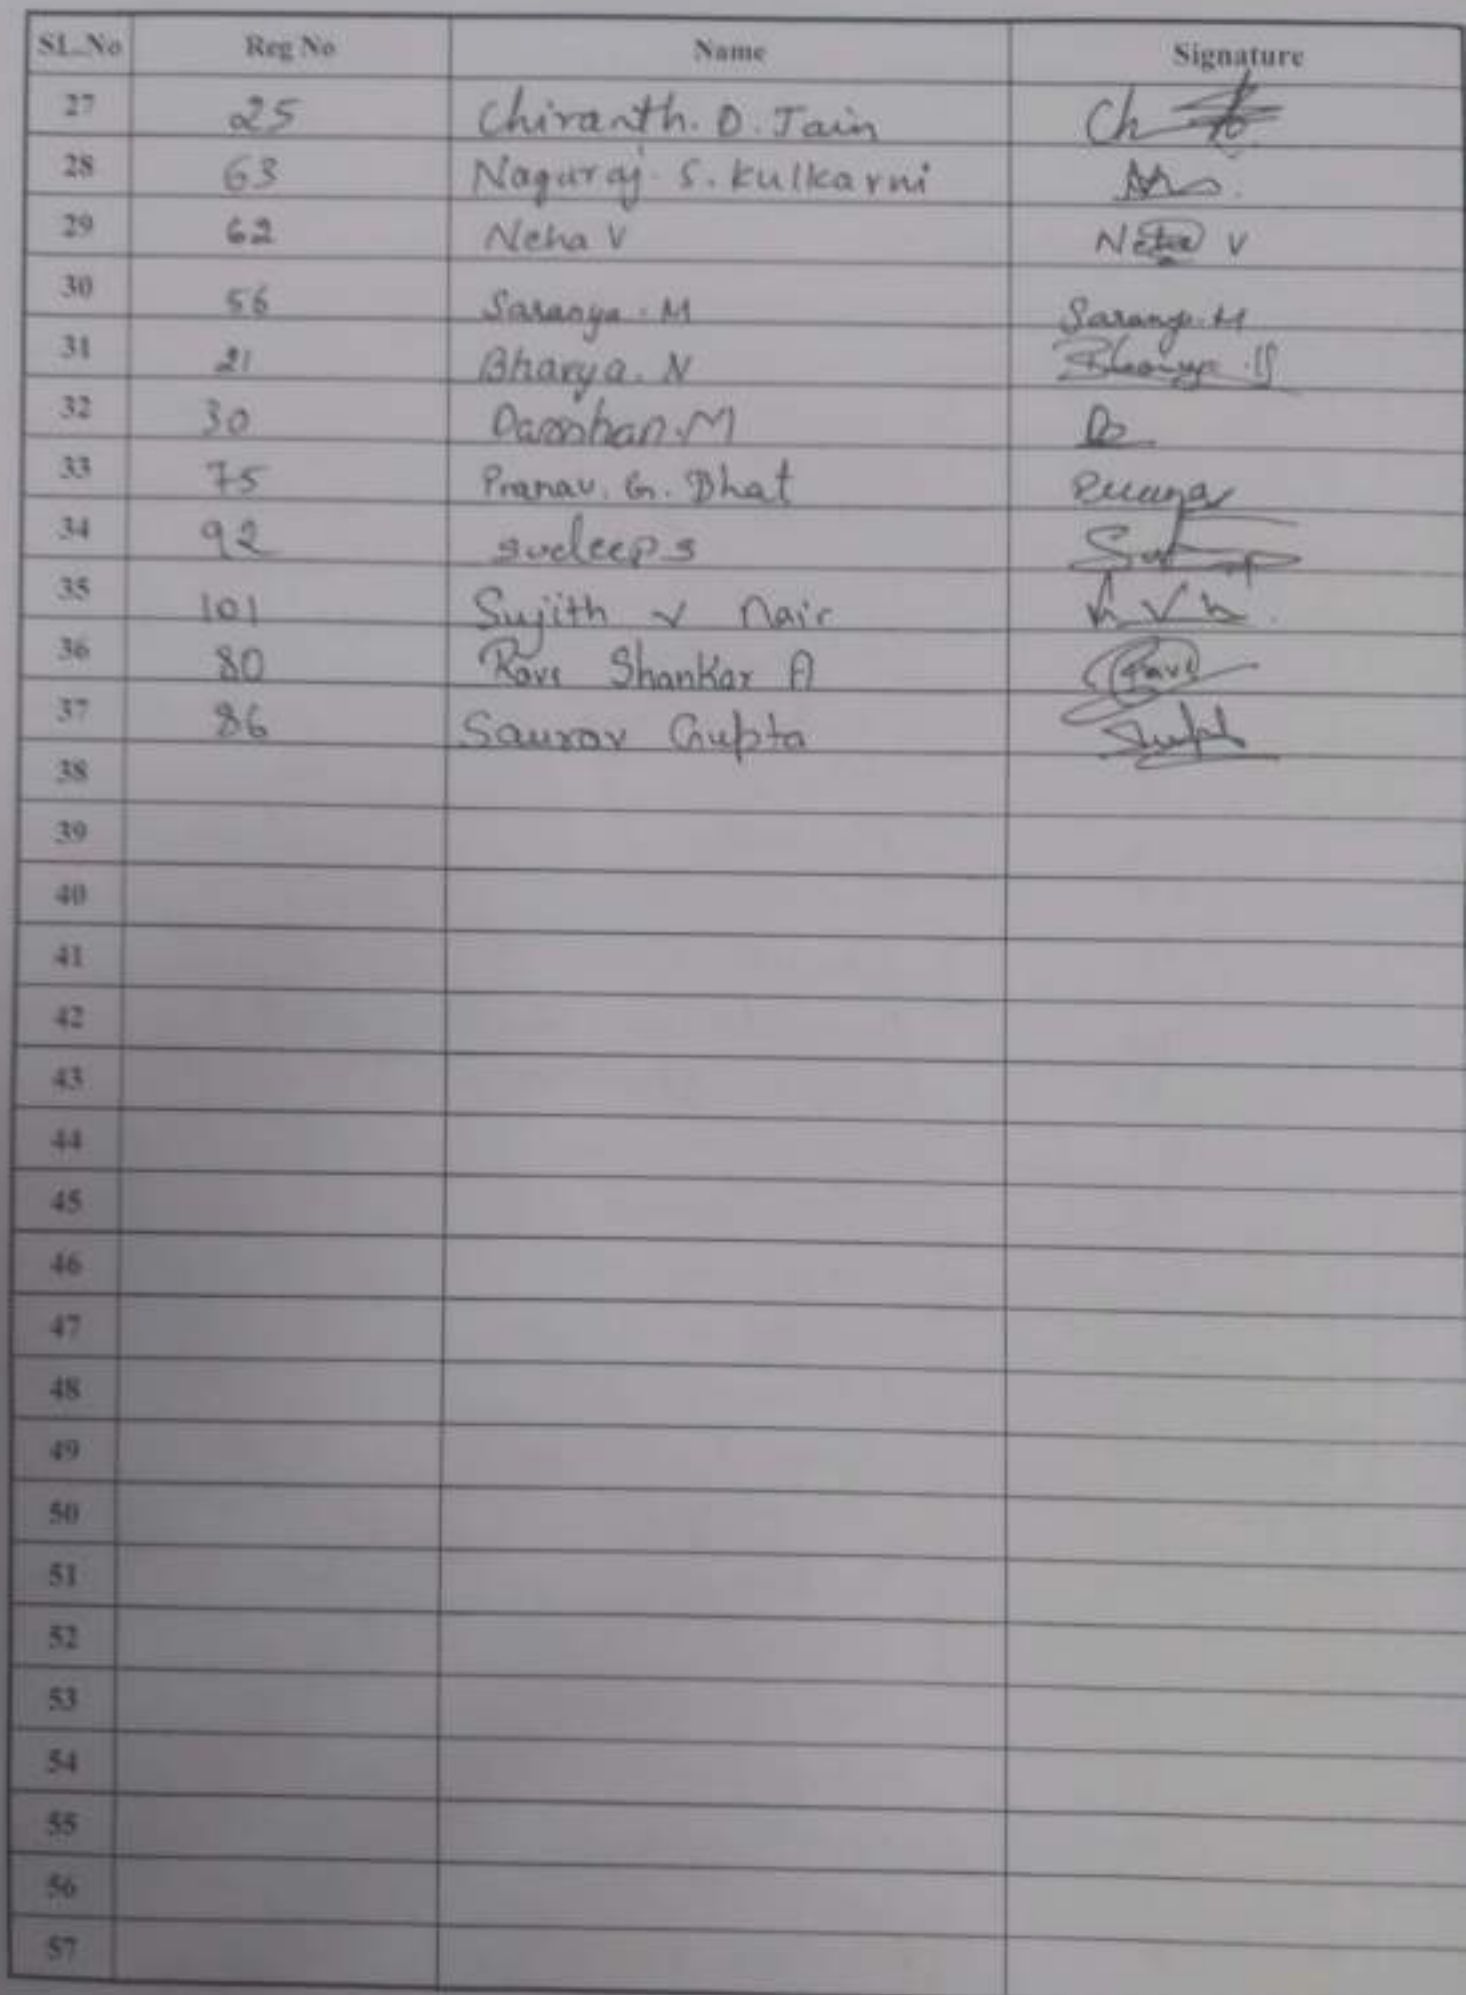 SL.No Reg No Name Signature
27 25 Chiranth. D. Jain Ch
28 63 Nagaraj. S. Kulkarni
29 62 Neha V Neha V
30 56 Saranya. M Saranya. M
31 21 Bhavya. N Bhavya. N
32 30 Darshan. M
33 75 Pranav. G. Bhat
34 92 sudeep s
35 101 Sujith V Nair
36 80 Ravi Shankar A Ravi
37 86 Saurav Gupta
38
39
40
41
42
43
44
45
46
47
48
49
50
51
52
53
54
55
56
57